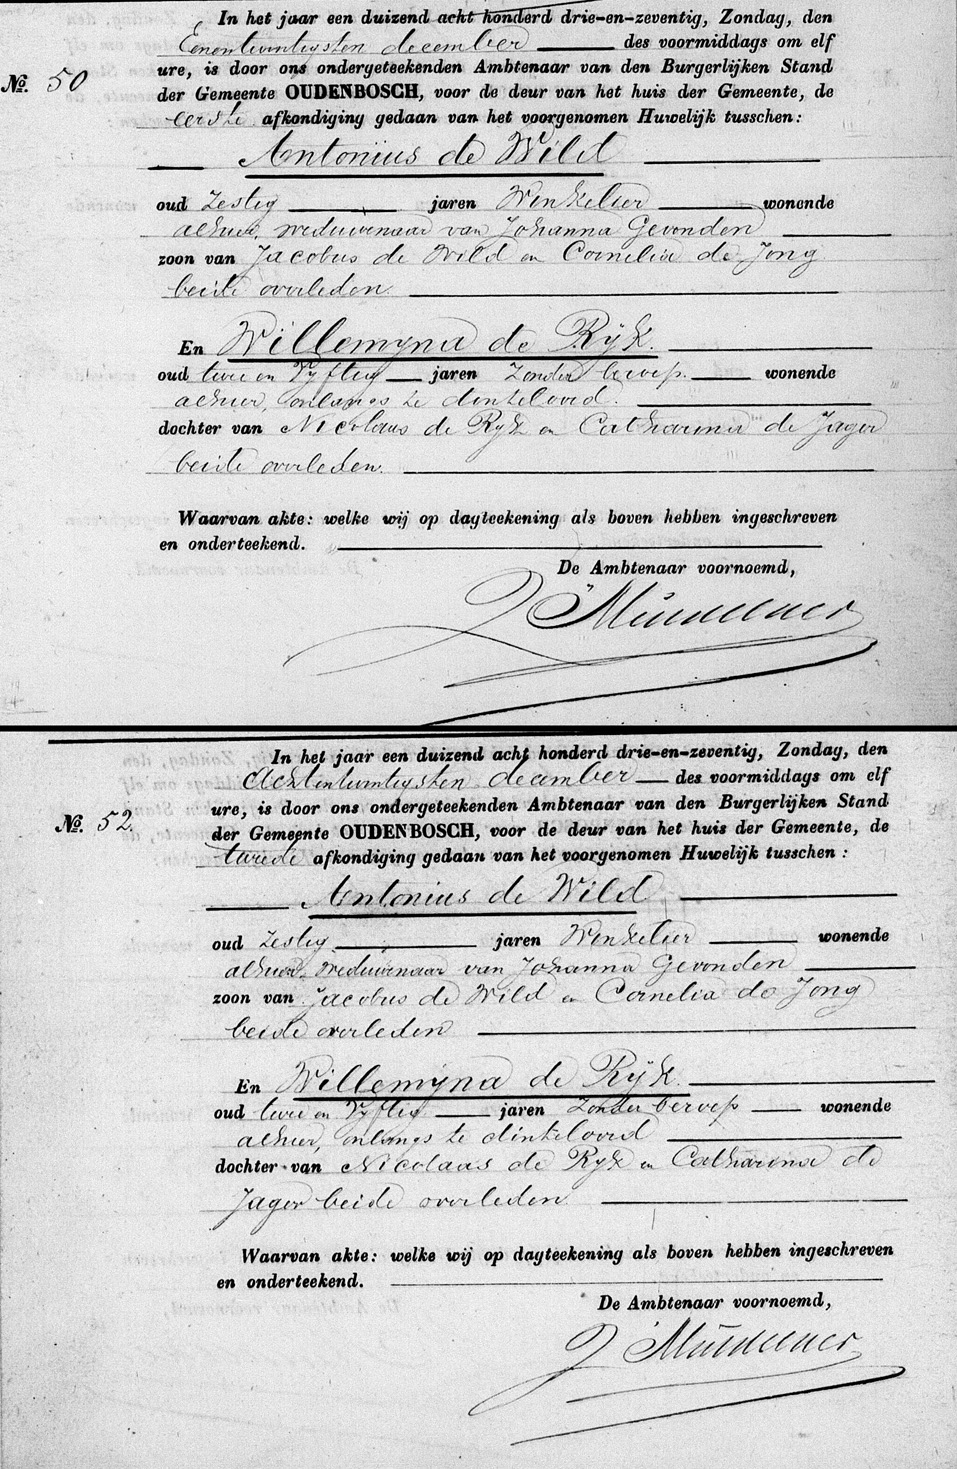 In het jaar een duizend acht honderd drie-en-zeventig, Zondag, den
Eenentwintigsten december des voormiddags om elf
No. 50
ure, is door ons ondergeteekenden Ambtenaar van den Burgerlijken Stand
der Gemeente OUDENBOSCH, voor de deur van het huis der Gemeente, de
eerste afkondiging gedaan van het voorgenomen Huwelijk tusschen:
Antonius de Wild
oud Zestig jaren Winkelier wonende
alhier, weduwenaar van Johanna Gevonden
zoon van Jacobus de Wild en Cornelia de Jong
beide overleden.
En Willemyna de Ryk.
oud twee en Vyftig jaren Zonder beroep. wonende
alhier, onlangs te dinteloord.
dochter van Nicolaas de Ryk en Catharina de Jager
beide overleden.
Waarvan akte: welke wij op dagteekening als boven hebben ingeschreven
en onderteekend.
De Ambtenaar voornoemd,
In het jaar een duizend acht honderd drie-en-zeventig, Zondag, den
Achtentwintigsten december des voormiddags om elf
ure, is door ons ondergeteekenden Ambtenaar van den Burgerlijken Stand
No. 52.
der Gemeente OUDENBOSCH, voor de deur van het huis der Gemeente, de
tweede afkondiging gedaan van het voorgenomen Huwelijk tusschen:
Antonius de Wild
oud Zestig. jaren Winkelier wonende
alhier, weduwenaar van Johanna Gevonden
zoon van Jacobus de Wild en Cornelia de Jong
beide overleden
En Willemyna de Ryk.
oud twee en Vyftig jaren Zonder beroep wonende
alhier, onlangs te dinteloord
dochter van Nicolaas de Ryk en Catharina de
Jager beide overleden
Waarvan akte: welke wij op dagteekening als boven hebben ingeschreven
en onderteekend.
De Ambtenaar voornoemd,